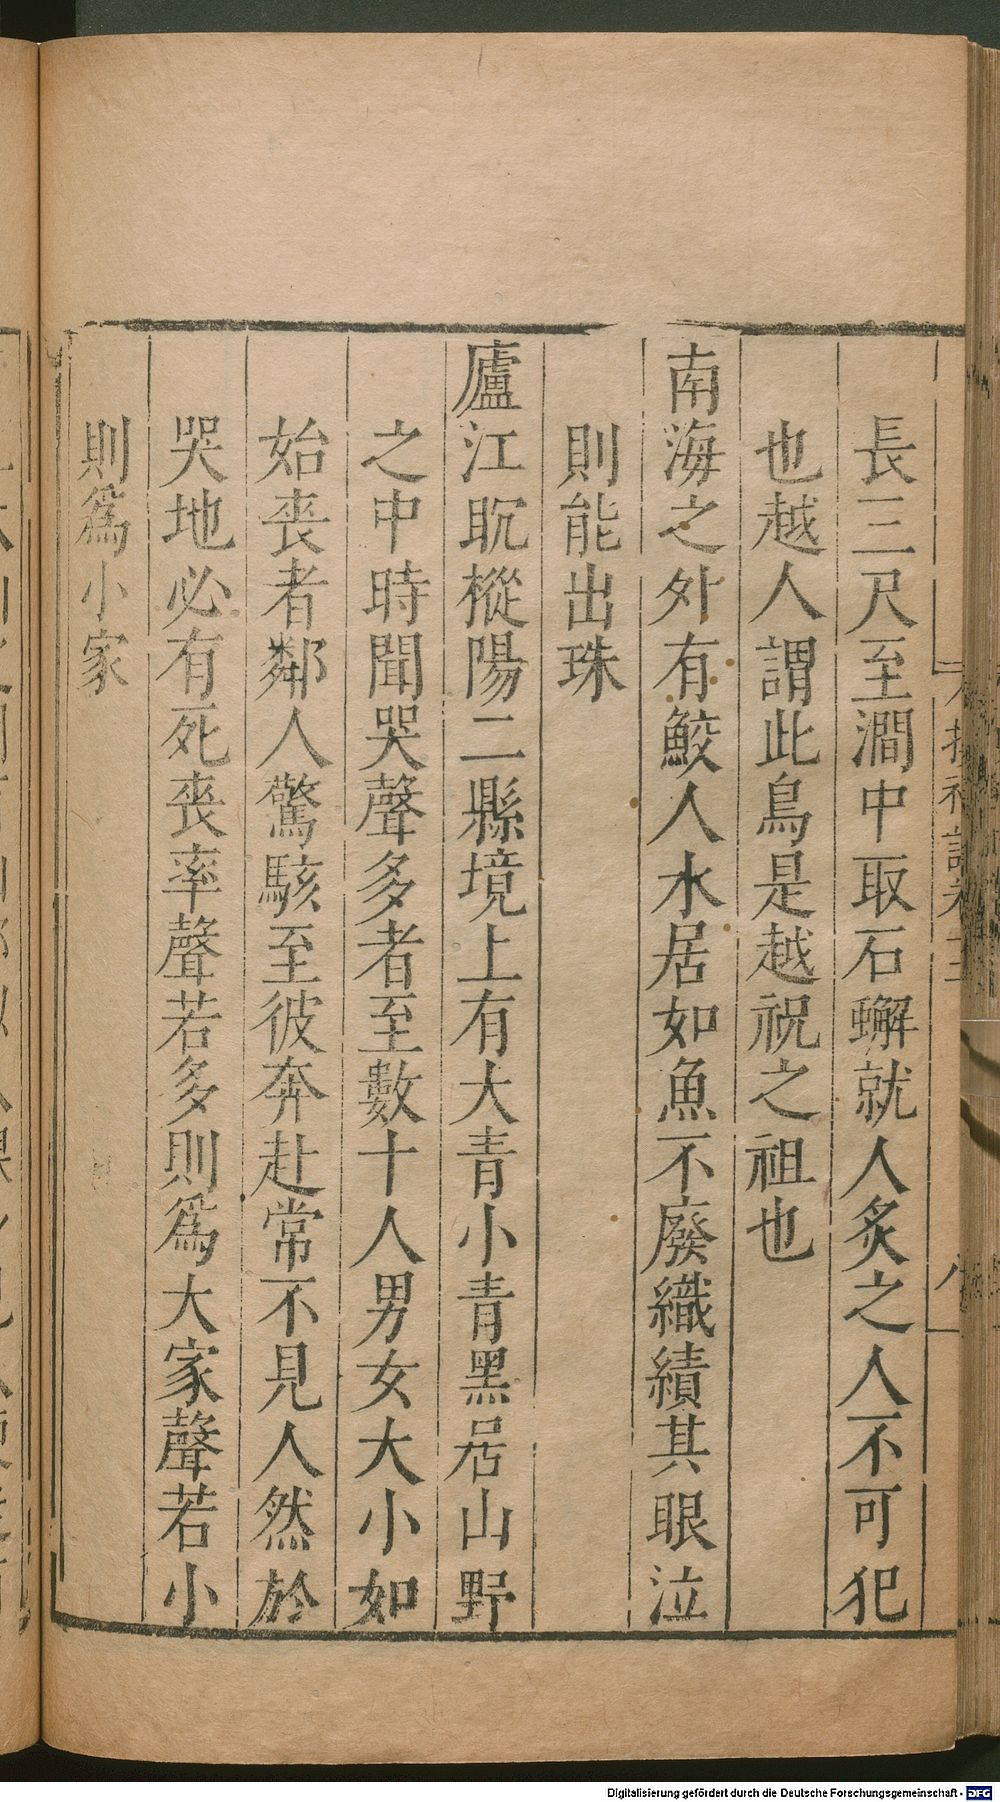 長三尺至澗中取石蠏就人炙之人不可犯
也越人謂此鳥是越祝之祖也
南海之外有鮫人水居如魚不廢織績其眼泣
則能出珠
廬江䏙樅陽二縣境上有大青小青黑居山野
之中時聞哭聲多者至數十人男女大小如
始喪者鄰人驚駭至彼奔赴常不見人然於
哭地必有死喪率聲若多則爲大家聲若小
則爲小家
Digitalisierung gefördert durch die Deutsche Forschungsgemeinschaft - DFG